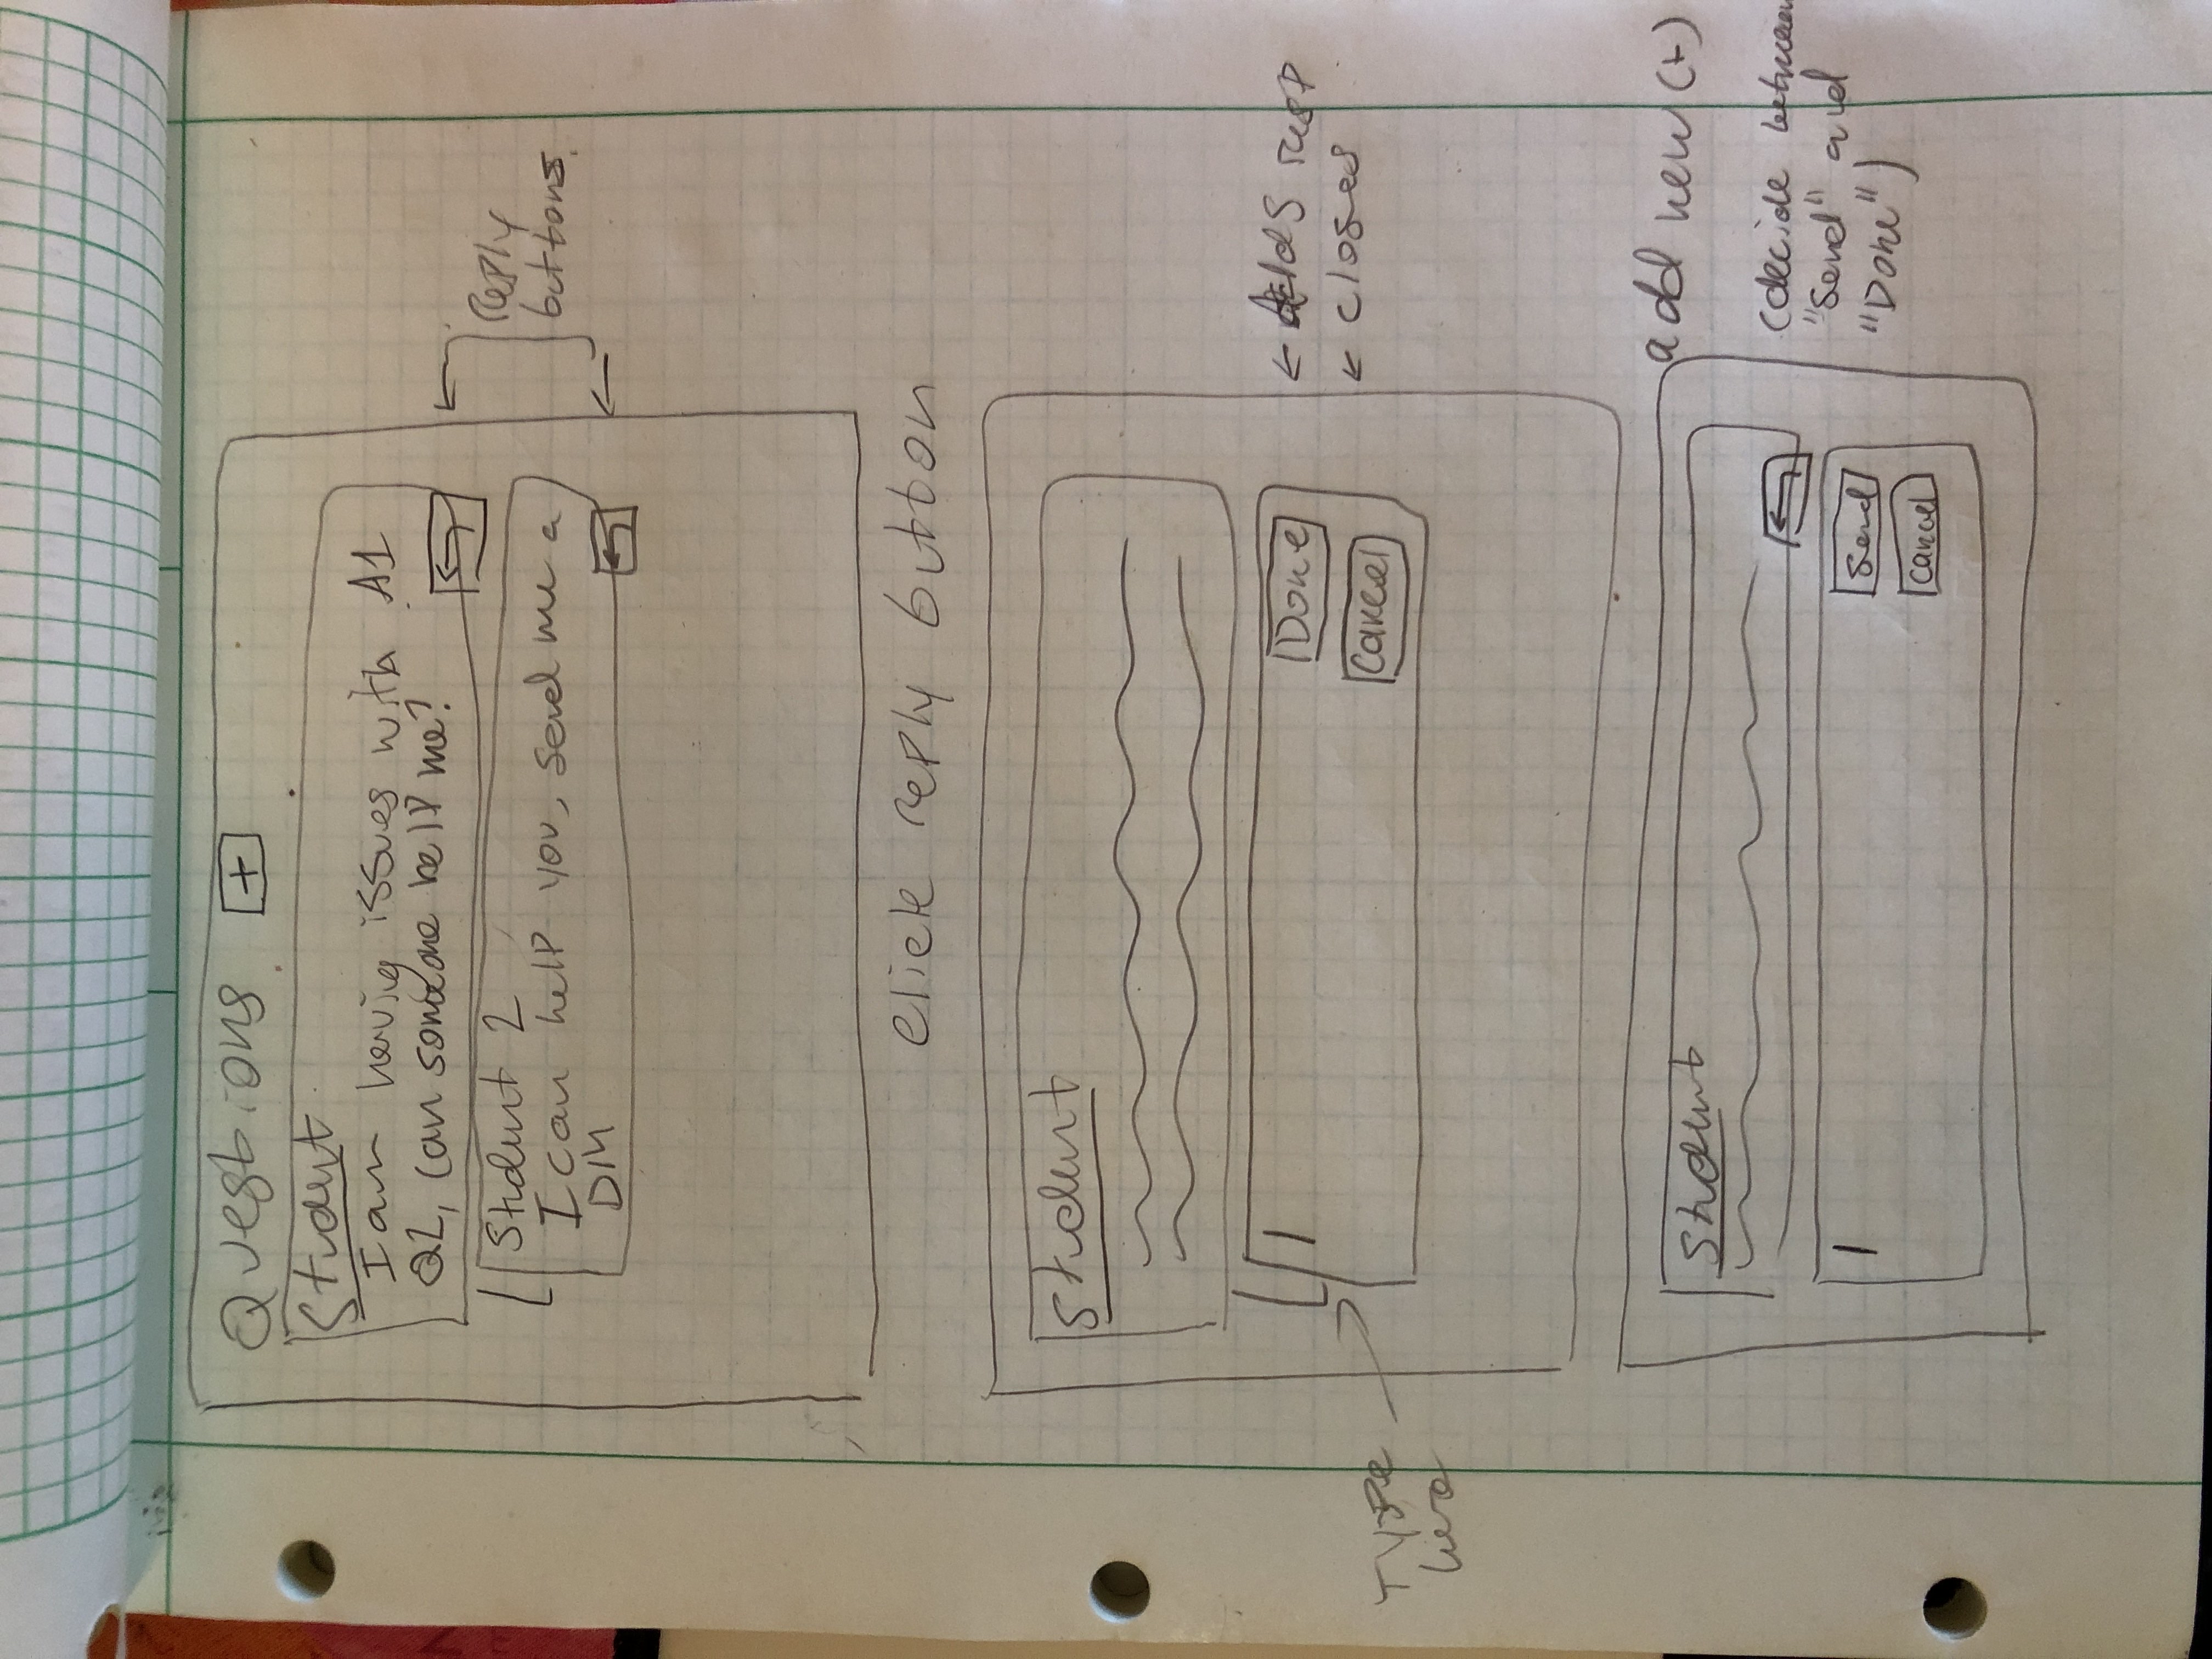 Questions +
Student
I am having issues with A1
Q1, can someone help me?
Student 2
I can help you, send me a
DM
reply
buttons.
click reply button
Student
Done
Cancel
← Adds resp
← closes
Type
here
add new (+)
Student
(decide between
"Send" and
"Done")
Send
Cancel